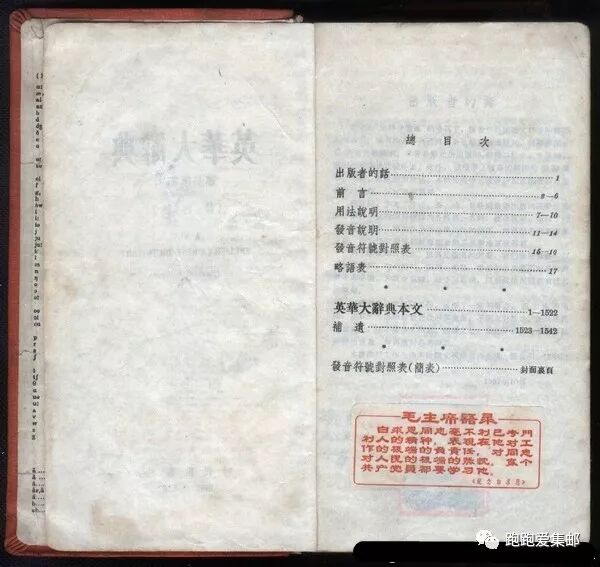 總目次
出版者的話 1
前言 2—6
用法說明 7—10
發音說明 11—14
發音符號對照表 15—16
略語表 17
英華大辭典本文 1—1522
補遺 1523—1542
發音符號對照表(簡表) 封面裏頁
毛主席語录
白求恩同志毫不利己专門
利人的精神，表現在他对工
作的极端的負責任，对同志
对人民的极端的热忱。每个
共产党員都要学习他。
《紀念白求恩》
跑跑爱集邮